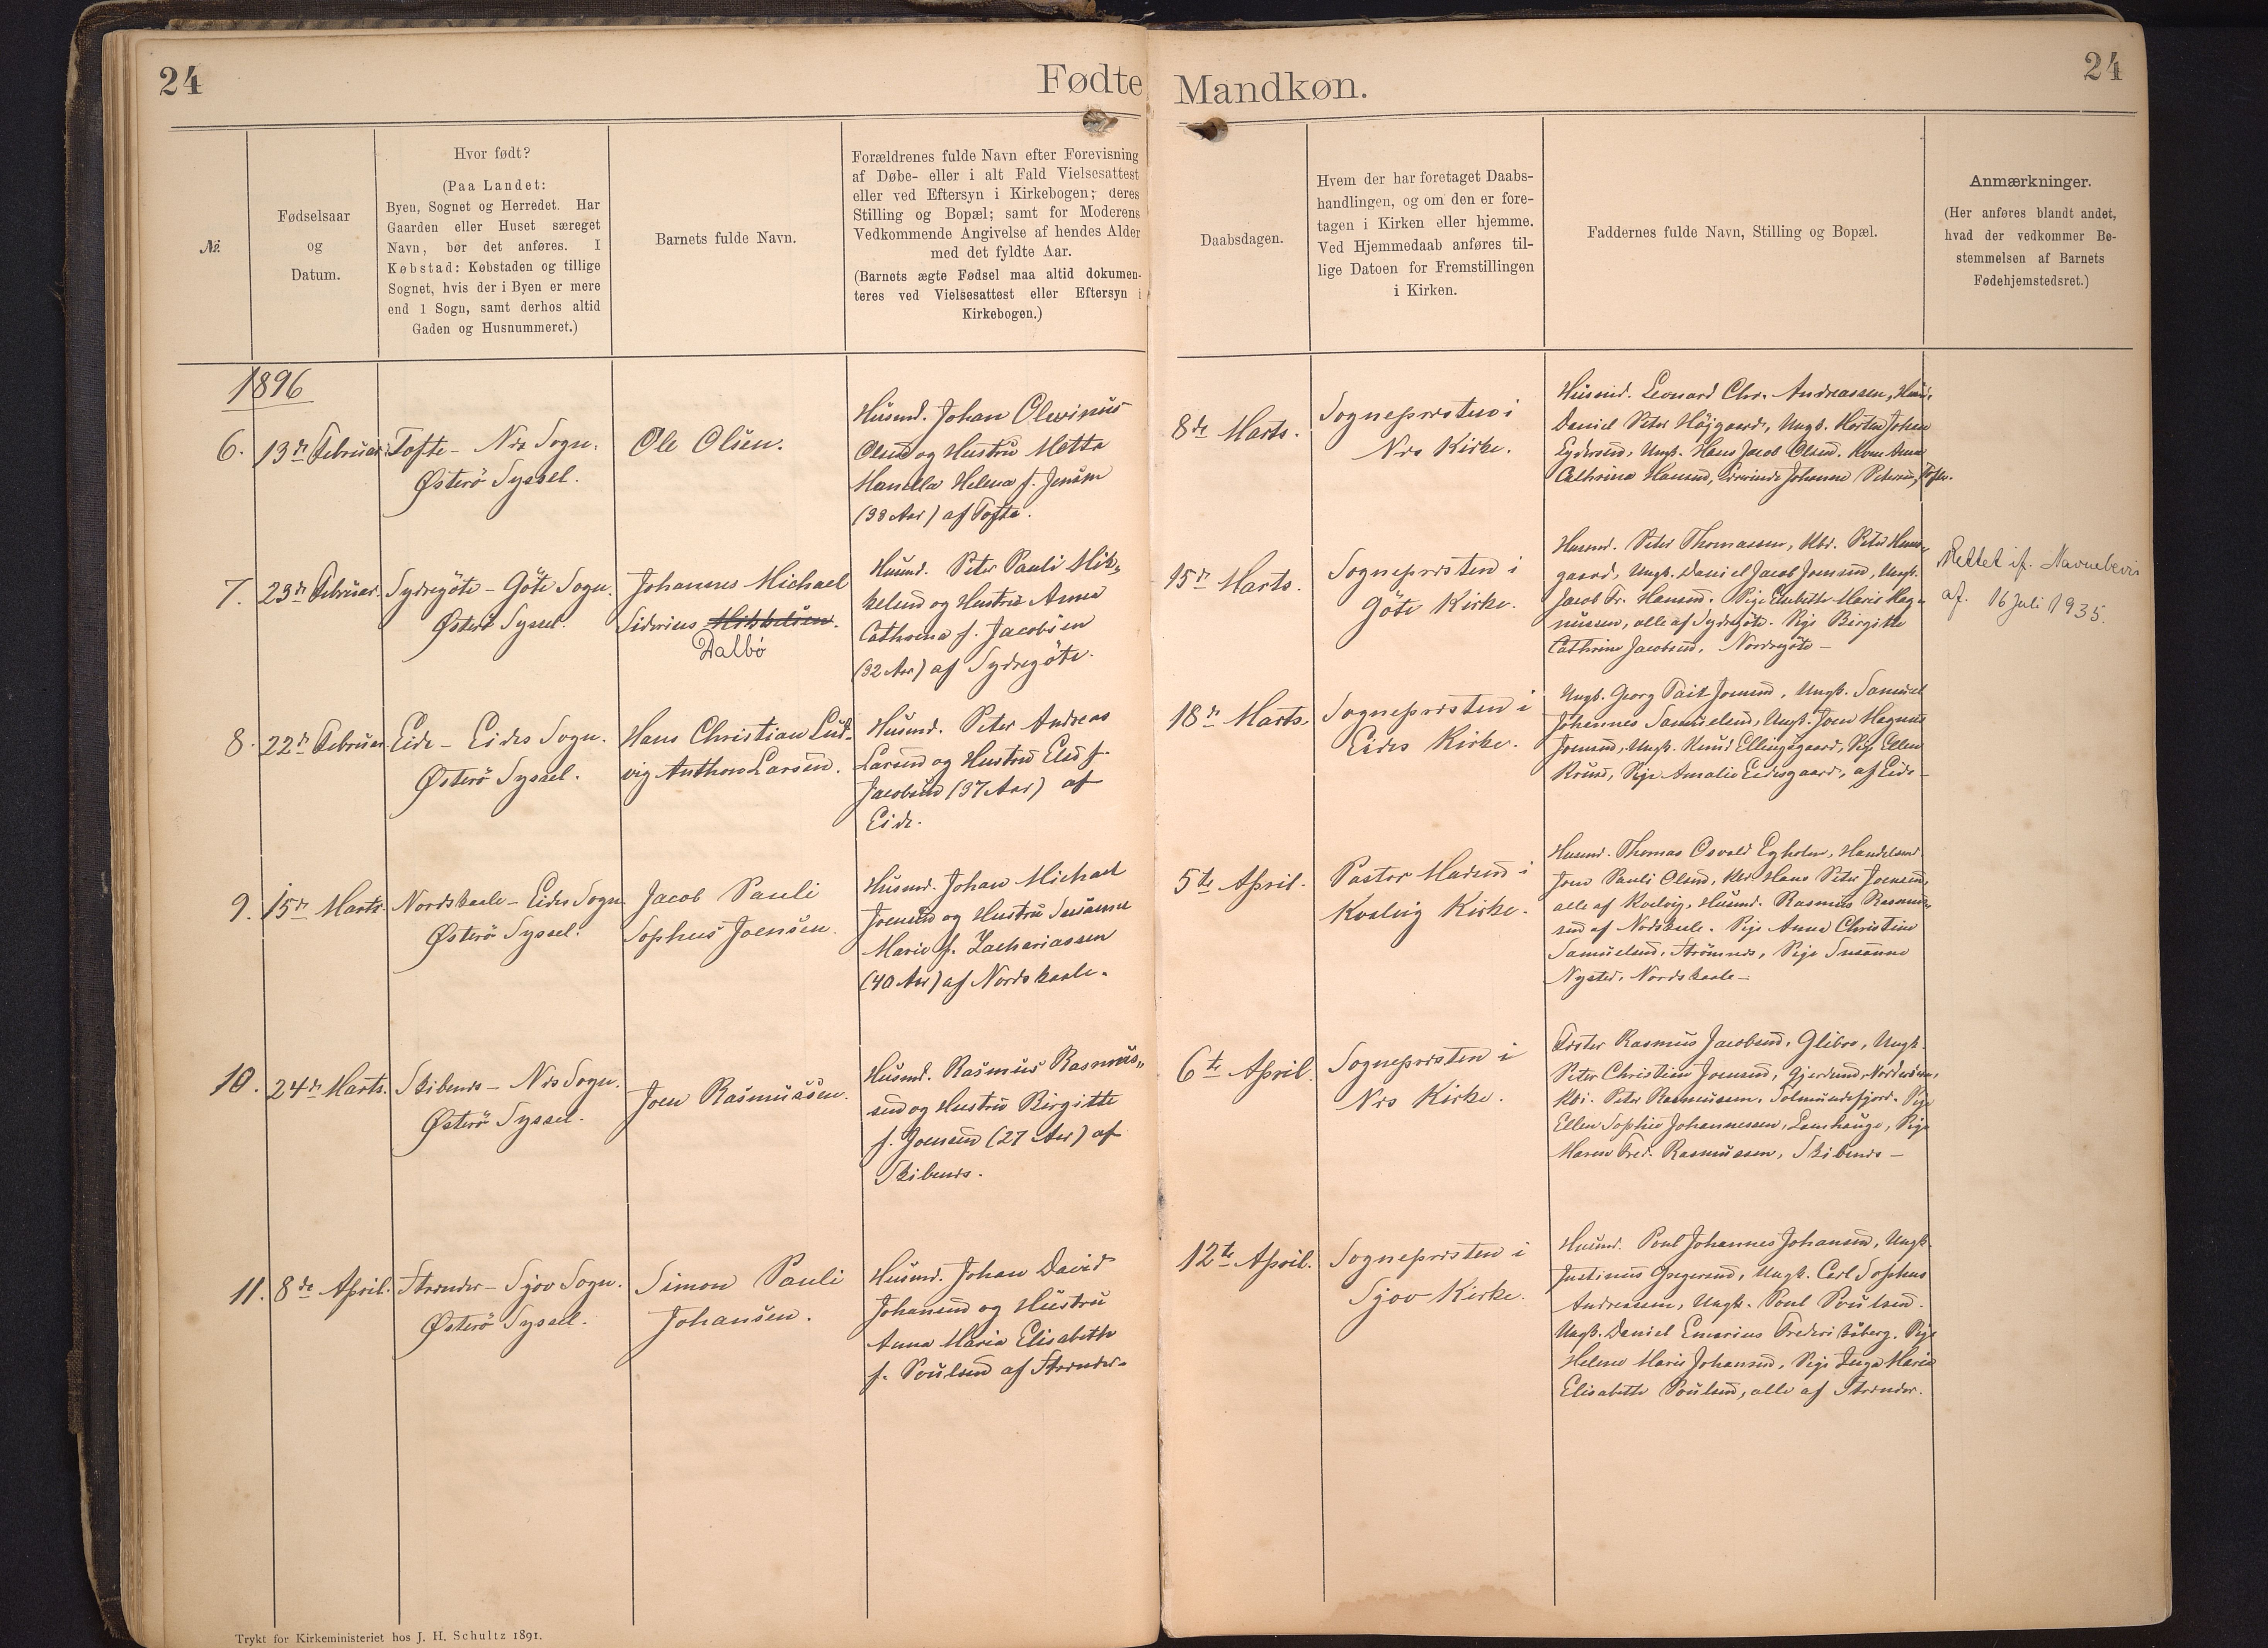 24
Fødte
Mandkøn.
24
№.
Fødselsaar
og
Datum.
Hvor født?
(Paa Landet:
Byen, Sognet og Herredet. Har
Gaarden eller Huset særeget
Navn, bør det anføres. I
Købstad: Købstaden og tillige
Sognet, hvis der i Byen er mere
end 1 Sogn, samt derhos altid
Gaden og Husnummeret.)
Barnets fulde Navn.
Forældrenes fulde Navn efter Forevisning
af Døbe- eller i alt Fald Vielsesattest
eller ved Eftersyn i Kirkebogen; deres
Stilling og Bopæl; samt for Moderens
Vedkommende Angivelse af hendes Alder
med det fyldte Aar.
(Barnets ægte Fødsel maa altid dokumen-
teres ved Vielsesattest eller Eftersyn i
Kirkebogen.)
Daabsdagen.
Hvem der har foretaget Daabs-
handlingen, og om den er fore-
tagen i Kirken eller hjemme.
Ved Hjemmedaab anføres til-
lige Datoen for Fremstillingen
i Kirken.
Faddernes fulde Navn, Stilling og Bopæl.
Anmærkninger.
(Her anføres blandt andet,
hvad der vedkommer Be-
stemmelsen af Barnets
Fødehjemstedsret.)
1896
6.
13de Februar.
Tofte - Nes Sogn.
Østerö Syssel.
Ole Olsen.
Husmd. Johan Olevinus
Olsen og Hustru Metta
Helena f. Jensen
(38 Aar) af Tofte.
8de Marts.
Sognepresten i
Nes Kirke.
Husmd. Leonard Chr. Andreassen, Husmd.
Daniel Peter Höjgaard, Ungk. Johan
Ungk. Hans Jacob Olsen. Kone Anna
Cathrina Hansen, Johanne Petersen, Tofte.
7.
23de Februar.
Sydregöte - Göte Sogn.
Österö Syssel.
Johannes Michael
Siderius Mikkelsen.
Dalbö
Husmd. Peter Pauli Mik-
kelsen og Hustru Anna
Cathrina f. Jacobsen
(32 Aar) af Sydregöte.
15de Marts.
Sognepresten i
Göte Kirke.
Husmd. Peter Thomassen, Kbd. Peter
gaard, Ungk. Daniel Jacob Joensen, Ungk.
Jacob Fr. Hansen. Pige Elsebeth Marie Mag-
nussen, alle af Sydregöte. Pige Birgitte
Cathrine Jacobsen, Nordregöte -
Rettet if. Navnebevis
af. 16 Juli 1935.
8.
22de Februar
Eide - Eides Sogn.
Østerö Syssel.
Hans Christian Lud-
vig Anthon Larsen.
Husmd. Peter Andreas
Larsen og Hustru Elsa f.
Jacobsen (37 Aar) af
Eide.
18de Marts.
Sognepresten i
Eides Kirke.
Ungk. Georg Tait Joensen, Ungk. Samuel
Johannes Samuelsen, Ungk. Joen Magnus
Joensen, Ungk. Knud Ellingsgaard, Pige Ellen
Kruse, Pige Amalie Eidesgaard, af Eide -
9.
15de Marts.
Nordskaale - Eides Sogn
Østerö Syssel.
Jacob Pauli
Sophus Joensen.
Husmd. Johan Michael
Joensen og Hustru Susanne
Marie f. Zachariassen
(40 Aar) af Nordskaale.
5te April.
Pastor Madsen i
Kvalvig Kirke.
Husmd. Thomas Osvald Egholm, Handelsmd.
Joen Pauli Olsen, Kbd. Hans Peter Joensen,
alle af Kvalvig, Husmd. Rasmus Rasmus-
sen af Nordskaale. Pige Anne Christine
Samuelsen, Strømnes, Pige Susanne
Nysted, Nordskaale -
10.
24de Marts.
Skibenes - Nes Sogn.
Østerö Syssel.
Joen Rasmussen.
Husmd. Rasmus Rasmus-
sen og Hustru Birgitte
f. Joensen (27 Aar) af
Skibenes.
6te April.
Sognepresten i
Nes Kirke.
Fister Rasmus Jacobsen, Glibre, Ungk.
Peter Christian Joensen,
Kbd. Peter Rasmussen, Solmundefjord. Pige
Ellen Sophie Johannessen, Lamhauge, Pige
Maren Fred. Rasmussen, Skibenes -
11.
8de April.
Strender - Sjov Sogn.
Østerö Syssel.
Simon Pauli
Johansen.
Husmd. Johan David
Johansen og Hustru
Anna Maria Elisabeth
f. Poulsen af Strender.
12te April.
Sognepresten i
Sjov Kirke.
Husmd. Poul Johannes Johansen, Ungk.
Justinus Gregersen, Ungk. Carl Sophus
Andreassen, Ungk. Poul Poulsen.
Ungk. Daniel Emarius Frederiksberg. Pige
Helene Marie Johansen, Pige Inga Maria
Elisabeth Poulsen, alle af Strender.
Trykt for Kirkeministeriet hos J. H. Schultz 1891.